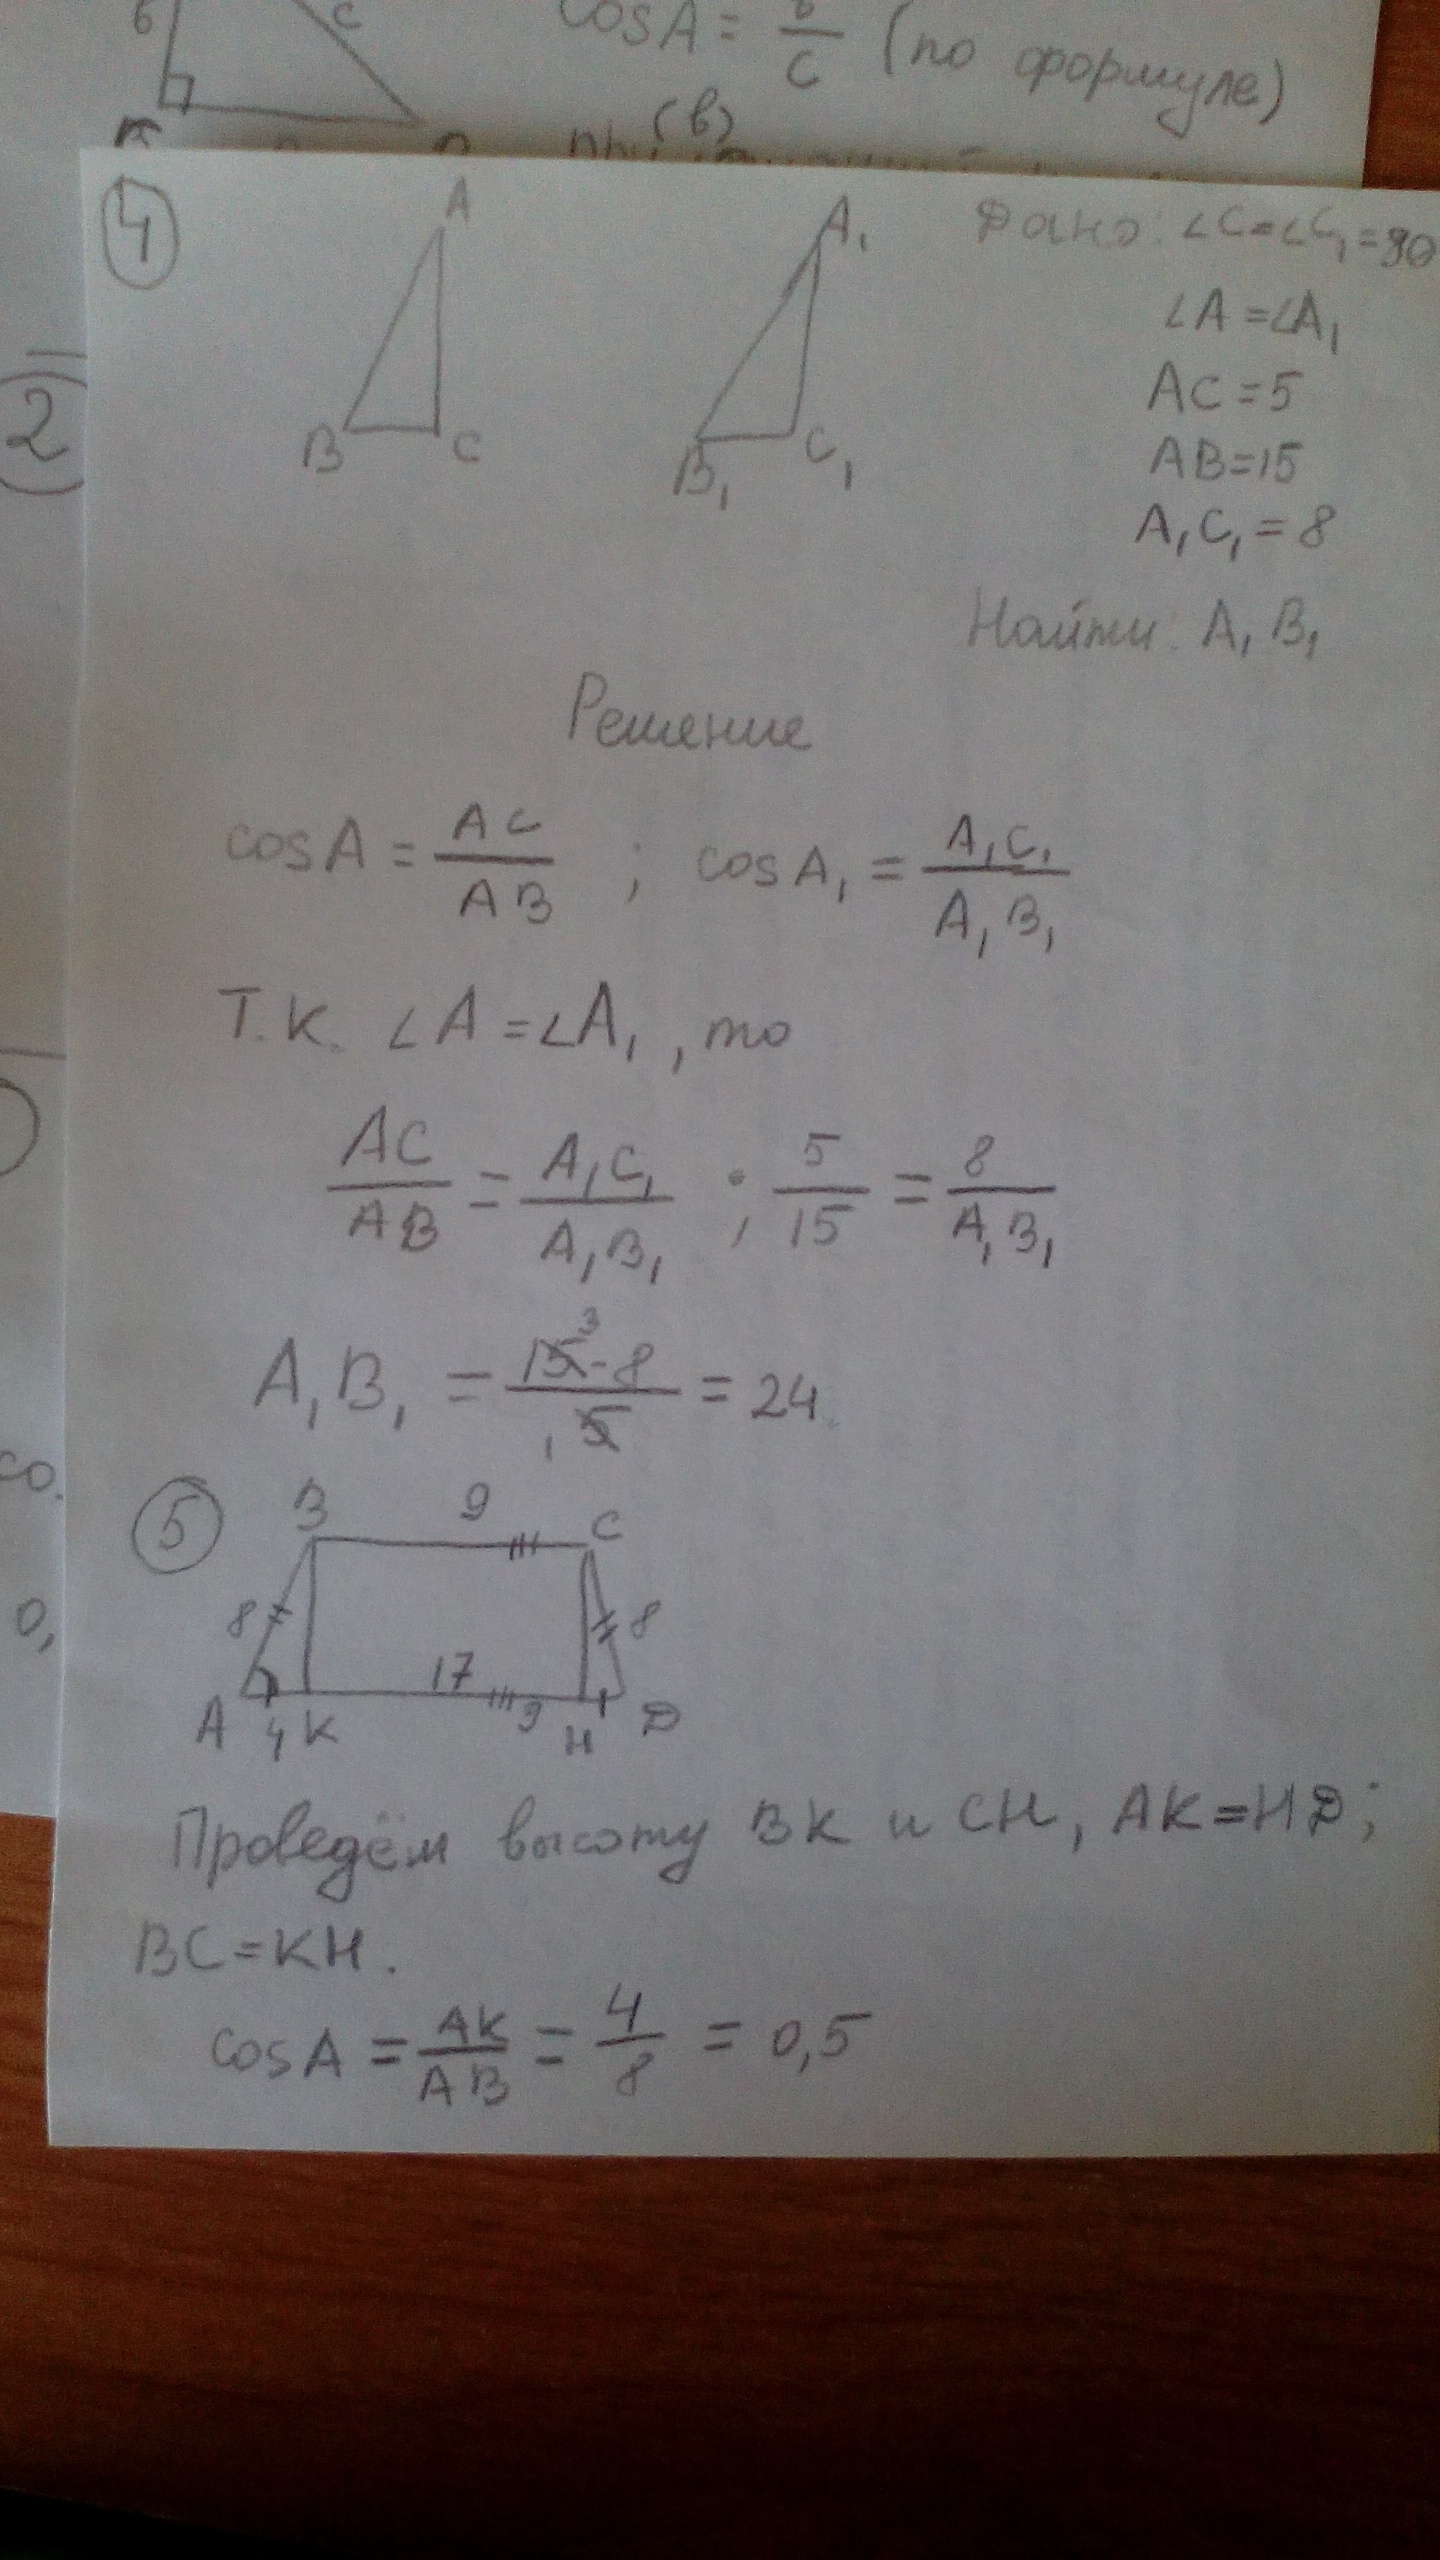 в c cosA = в/c (по формуле)
(в)
4 A A₁ Дано: ∠C=∠C₁=90
∠A=∠A₁
AC=5
2 B C B₁ C₁ AB=15
A₁C₁=8
Найти: A₁B₁
Решение
cosA = AC/AB ; cosA₁ = A₁C₁/A₁B₁
Т.к. ∠A=∠A₁, то
AC/AB = A₁C₁/A₁B₁ ; 5/15 = 8/A₁B₁
A₁B₁ = 15³·8/₁5 = 24.
со.
5 B 9 C
0, 8 8
17
A 4 K 9 H D
Проведём высоту BK и CH, AK=HD;
BC=KH.
cosA = AK/AB = 4/8 = 0,5